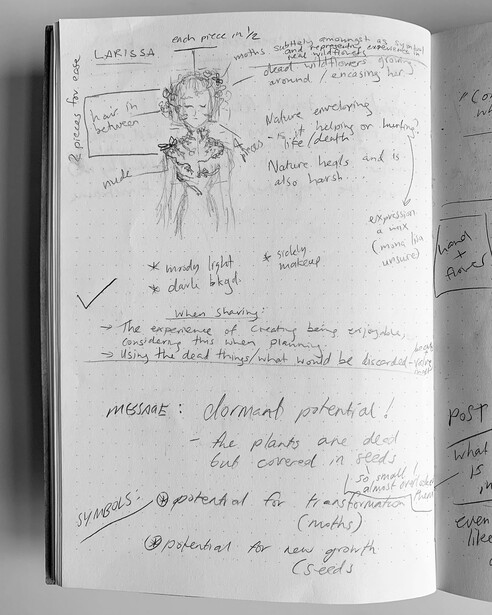 LARISSA
each piece in 1/2
moths subtlely amongst as symbol
and representing
real wildflowers
dead wildflowers growing
around / encasing her
2 pieces for ease
hair in
between
nude
4 pieces
Nature enveloping
- is it helping or hurting?
life/death
Nature heals and is
also harsh...
expression
a mix
(mona lisa
unsure)
* moody light
* dark bkgd.
* sickly
makeup
when sharing:
→ The experience of creating being enjoyable,
considering this when planning.
→ Using the dead things/what would be discarded
MESSAGE: dormant potential!
- the plants are dead
but covered in seeds
so small!
almost overlooked
them
SYMBOLS: * potential for transformation
(moths)
* potential for new growth
(seeds
"Co
hand
+
flower
POST
what
is
in
even
like